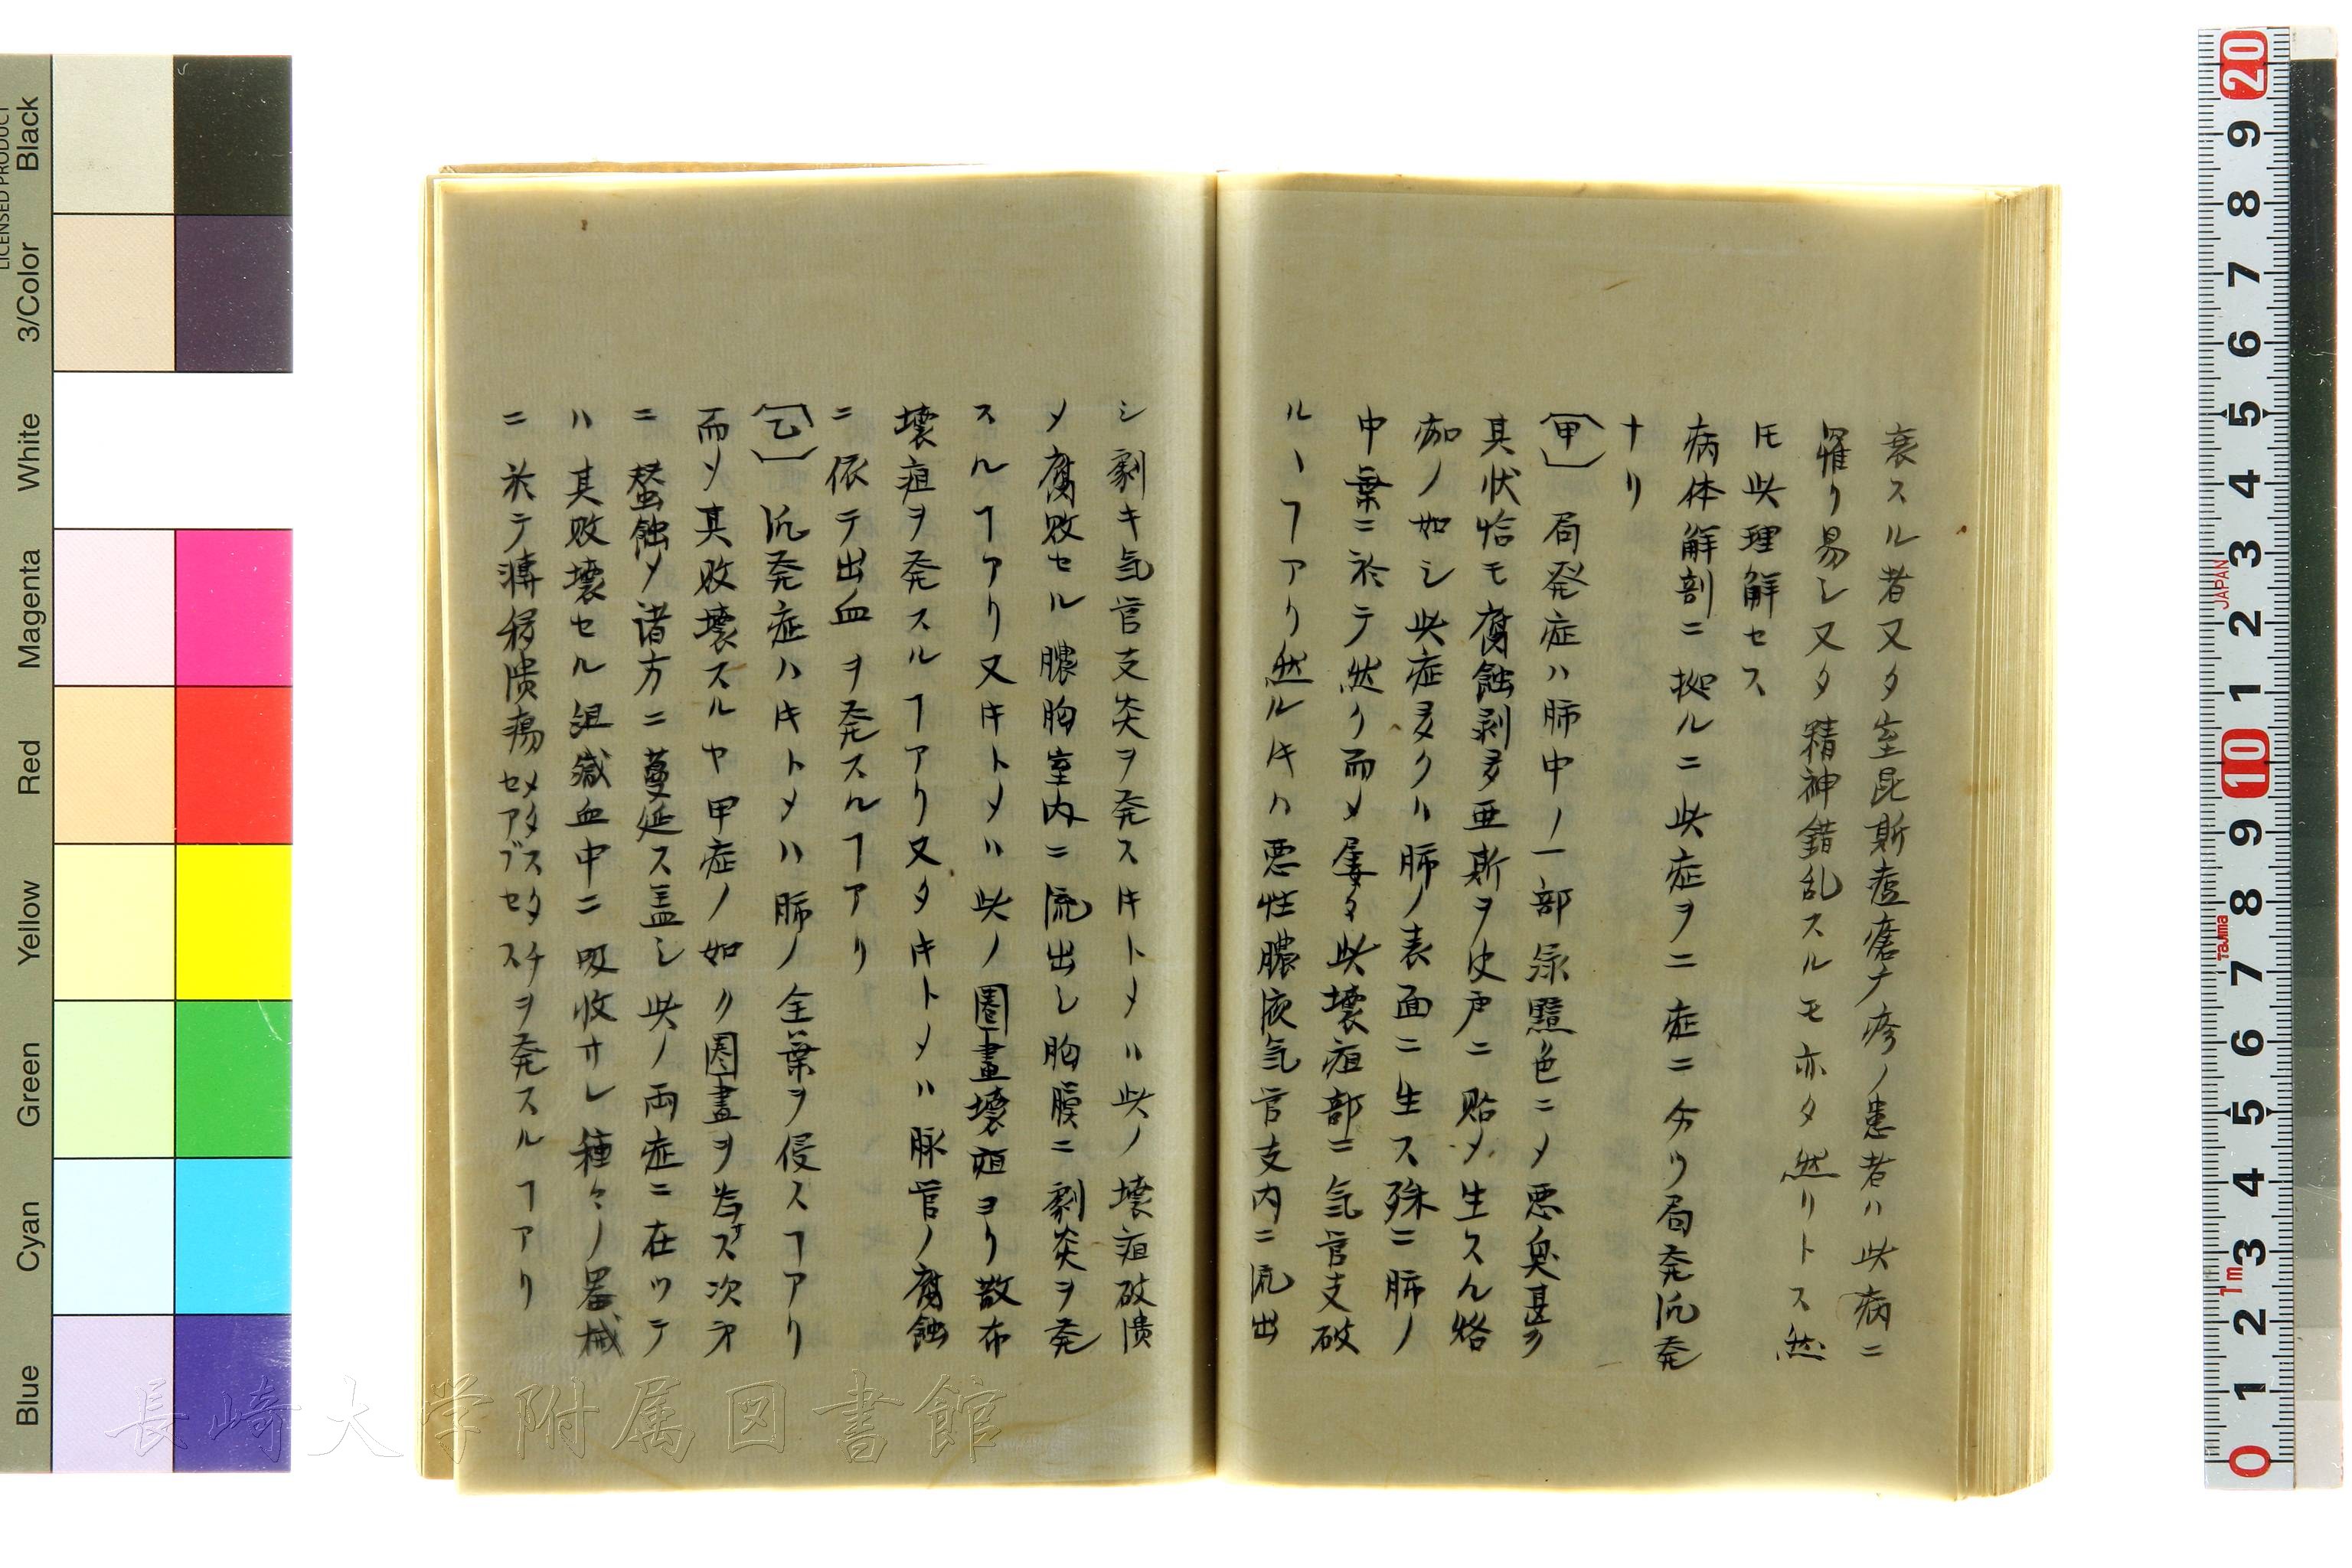 衰スル者又タ室昆斯痘瘡ナ疹ノ患者ハ此病ニ
罹リ易シ又タ精神錯乱スルモ亦タ然リトス然
𪜈此理解セス
病体解剖ニ拠ルニ此症ヲ二症ニ分ツ局発汎発
ナリ
〔甲〕局発症ハ肺中ノ一部緑黯色ニメ悪臭甚ク
其状恰モ腐蝕剥多亜斯ヲ皮戸ニ貼メ生スル烙
痂ノ如シ此症多クハ肺ノ表面ニ生ス殊ニ肺ノ
中葉ニ於テ然リ而メ屡々此壊疽部ニ気管支破
ルヽヿアリ然ルキハ悪性膿液気管支内ニ流出
シ劇キ気管支炎ヲ発スキトメハ此ノ壊疽破潰
メ腐敗セル膿胸室内ニ流出シ胸膜ニ劇炎ヲ発
スルヿアリ又キトメハ此ノ圏畫壊疽ヨリ散布
壊疽ヲ発スルヿアリ又タキトメハ脈管ノ腐蝕
ニ依テ出血ヲ発スルヿアリ
〔乙〕汎発症ハキトメハ肺ノ全葉ヲ侵スヿアリ
而メ其敗壊スルヤ甲症ノ如ク圏畫ヲ為サス次第
ニ蝕メ諸方ニ蔓延ス蓋シ此ノ両症ニ在ツテ
ハ其敗壊セル組織血中ニ吸收サレ種々ノ器械
ニ於テ轉移潰瘍メタスタチセアブセスヲ発スルヿアリ
LICENSED PRODUCT
Black
3/Color
White
Magenta
Red
Yellow
Green
Cyan
Blue
20
9
8
7
6
5
4
3
2
1
10
9
8
7
6
5
4
3
2
1
0
JAPAN
Tajima
1m
長崎大学附属図書館